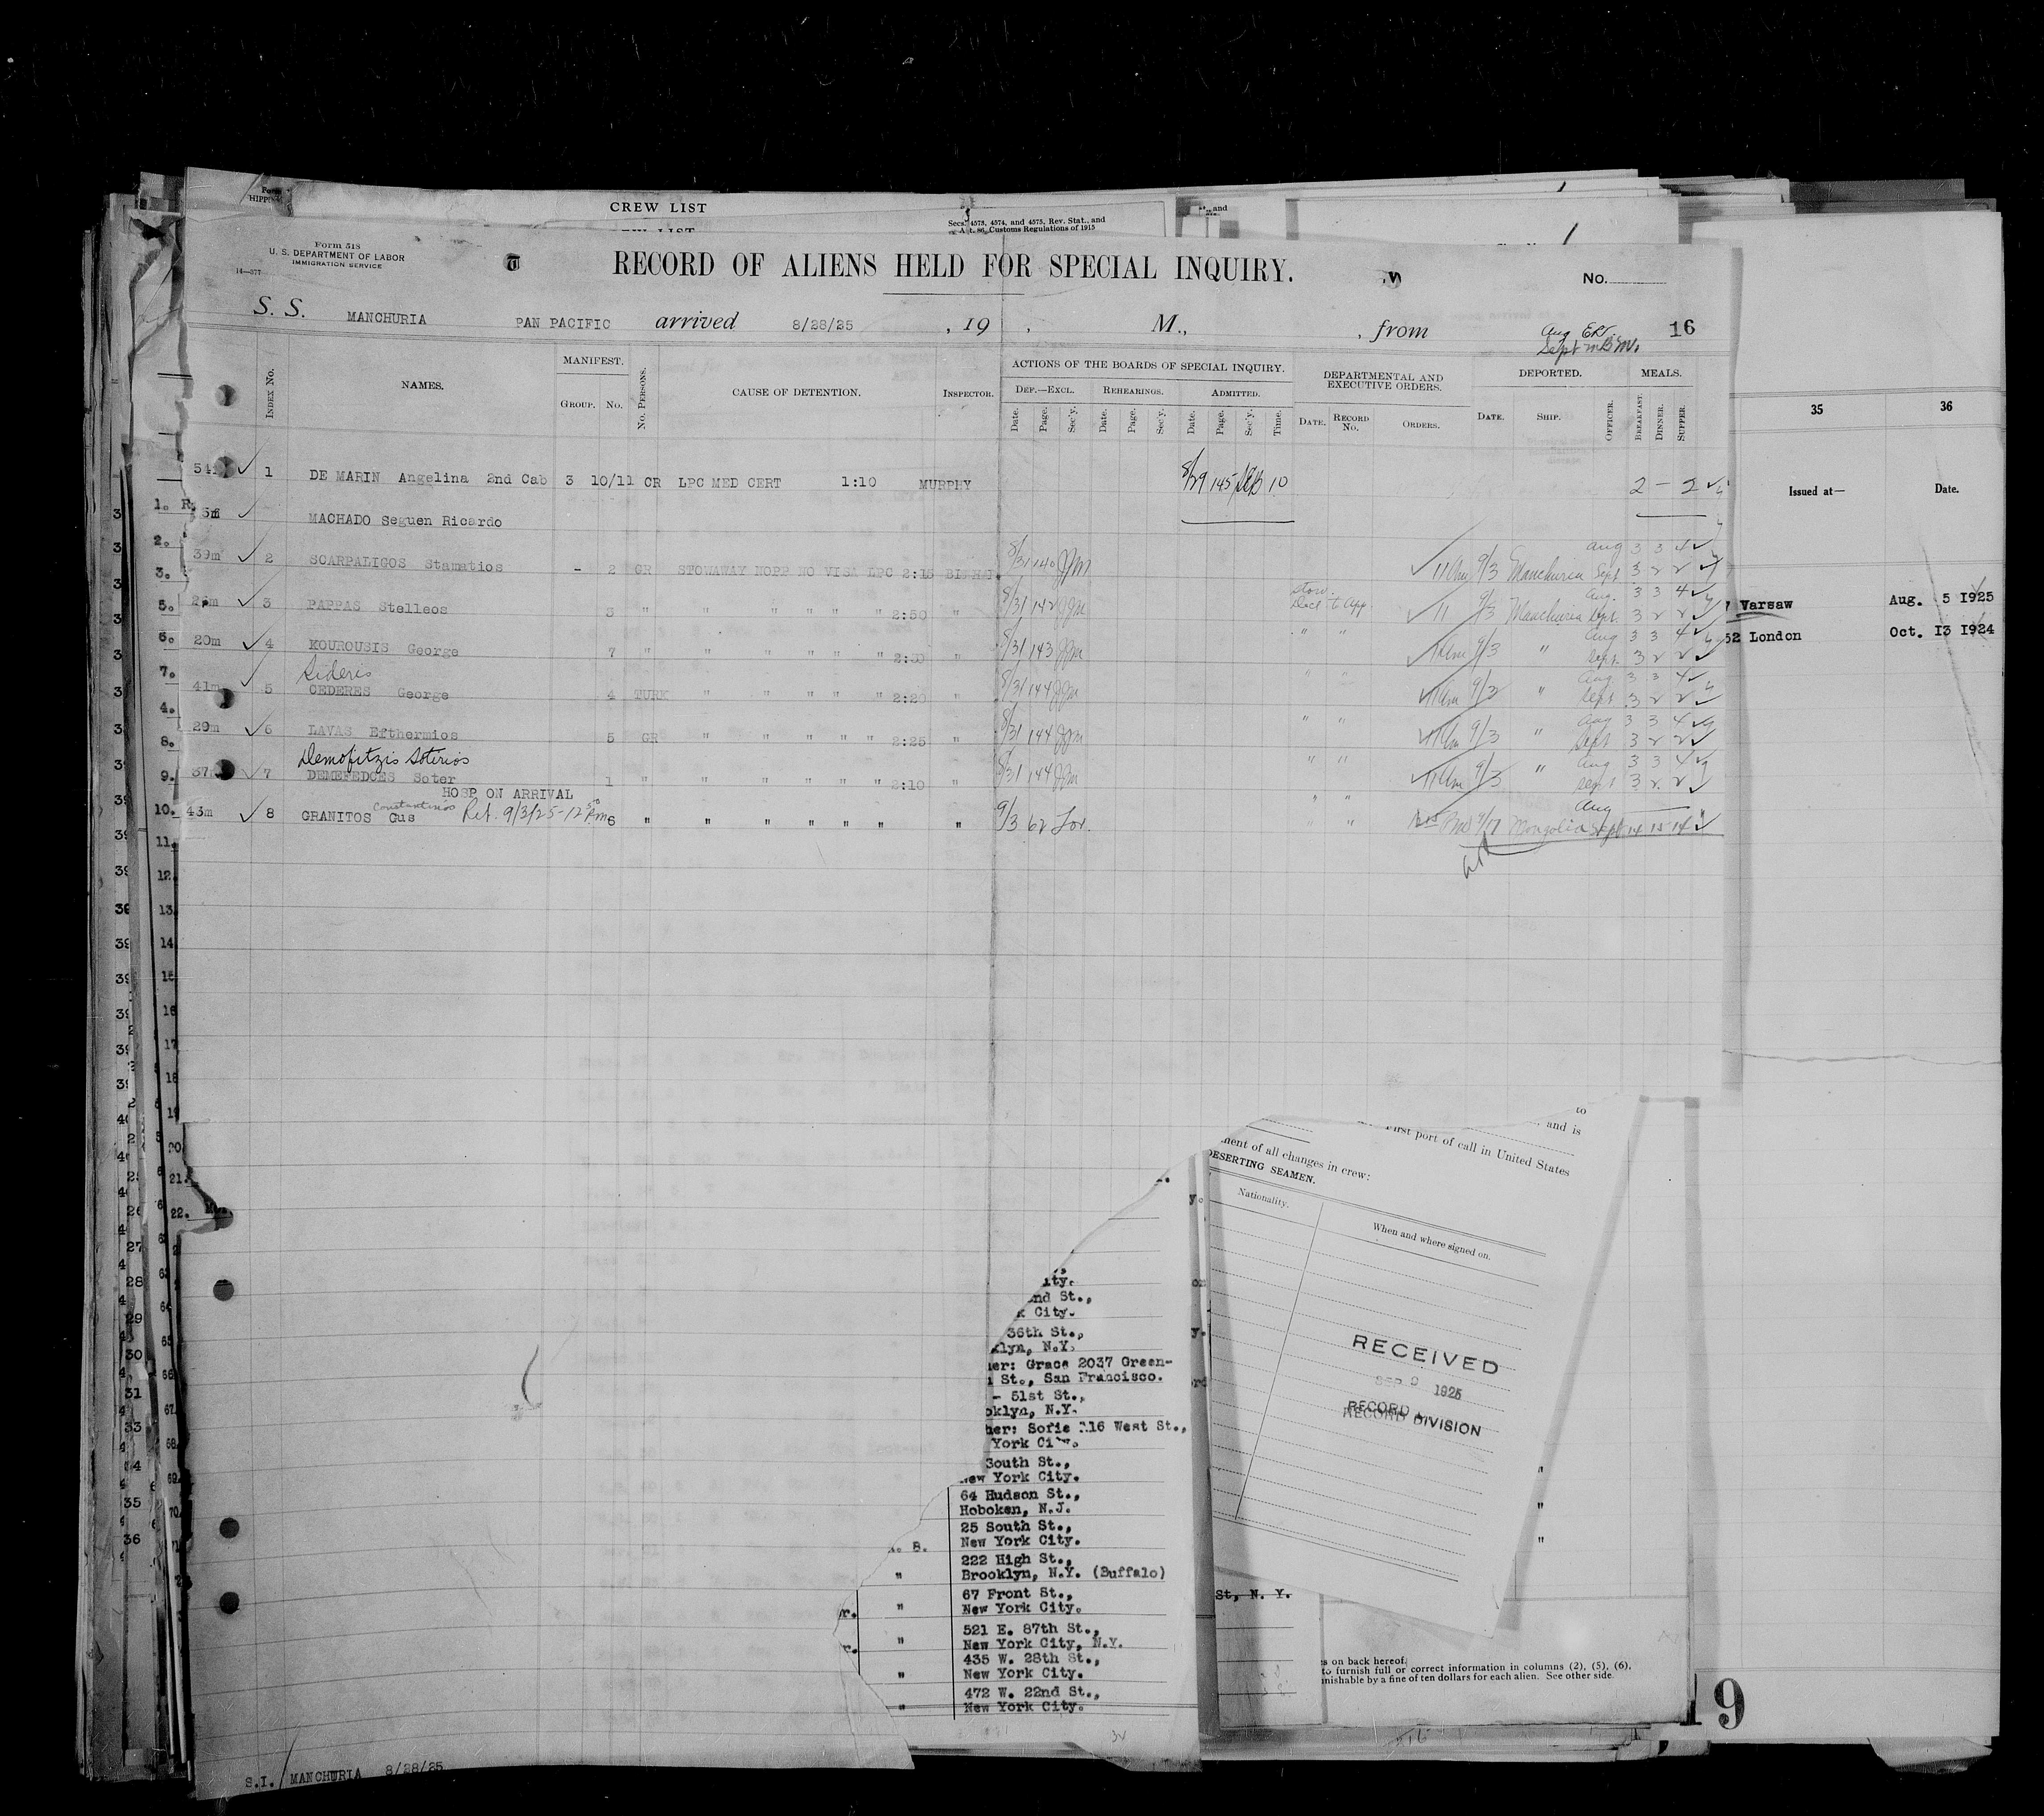 CREW LIST
Secs. 4573, 4574, and 4575, Rev. Stat., and
Art. 86, Customs Regulations of 1915
Form 518
U. S. DEPARTMENT OF LABOR
IMMIGRATION SERVICE
14—377
RECORD OF ALIENS HELD FOR SPECIAL INQUIRY.
No.
S. S. MANCHURIA PAN PACIFIC arrived 8/28/25 , 19 , M., , from 16
INDEX No. NAMES. MANIFEST. GROUP. No. No. PERSONS. CAUSE OF DETENTION. INSPECTOR.
ACTIONS OF THE BOARDS OF SPECIAL INQUIRY.
DEF.—EXCL. REHEARINGS. ADMITTED.
Date. Page. Sec'y. Date. Page. Sec'y. Date. Page. Sec'y. Time.
DEPARTMENTAL AND EXECUTIVE ORDERS.
DATE. RECORD No. ORDERS.
DEPORTED.
DATE. SHIP. OFFICER.
MEALS.
BREAKFAST. DINNER. SUPPER.
1 DE MARIN Angelina 2nd Cab 3 10/11 CR LPC MED CERT 1:10 MURPHY 8/29 145 10 2 — 2
MACHADO Seguen Ricardo
39m 2 SCARPALIGOS Stamatios - 2 GR STOWAWAY NOPP NO VISA LPC 2:15 8/31 140 JJM 11 Am 9/3 Manchuria Aug 3 3 4 Sept 3 2 2
3 PAPPAS Stelleos 3 " " " " " " 2:30 " 8/31 142 JJM Stow. Excl. t App. 11 9/3 Manchuria Aug. 3 3 4 Sept. 3 2 2
20m 4 KOUROUSIS George 7 " " " " " " " 8/31 143 JJM " " 11 Am 9/3 " Aug 3 3 4 Sept. 3 2 2
Sideris
41m 5 CEDERES George 4 TURK " " " " " 2:20 " 8/31 144 JJM " " 11 Am 9/3 " Aug 3 3 4 Sept 3 2 2
29m 6 LAVAS Efthermios 5 GR " " " " " 2:25 " 8/31 144 JJM " " 11 Am 9/3 " Aug 3 3 4 Sept 3 2 2
Demofitzis Soterios
37 7 DEMEFEDCES Soter 1 " " " " " " 2:10 " 8/31 144 JJM " " 11 Am 9/3 " Aug 3 3 4 Sept 3 2 2
HOSP ON ARRIVAL
43m 8 GRANITOS Constantinos Gus Ret. 9/3/25-12 6 " " " " " " " 9/3 62 " " 9/17 Mongolia Aug — Sept 14 15 14
35 36
Issued at— Date.
Warsaw Aug. 5 1925
52 London Oct. 13 1924
to
and is
First port of call in United States
ment of all changes in crew:
DESERTING SEAMEN.
Nationality. When and where signed on.
RECEIVED
SEP 9 1925
RECORD DIVISION
ity.
2nd St.,
k City.
36th St.,
klyn, N.Y.
her: Grace 2037 Green-
St., San Francisco.
- 51st St.,
oklyn, N.Y.
her: Sofie 116 West St.,
York City.
South St.,
New York City.
64 Hudson St.,
Hoboken, N.J.
25 South St.,
New York City.
222 High St.,
Brooklyn, N.Y. (Buffalo)
67 Front St.,
New York City.
521 E. 87th St.,
New York City, N.Y.
435 W. 28th St.,
New York City.
472 W. 22nd St.,
New York City.
St, N. Y.
s on back hereof.
to furnish full or correct information in columns (2), (5), (6),
unishable by a fine of ten dollars for each alien. See other side.
19
S.I. MANCHURIA 8/28/25